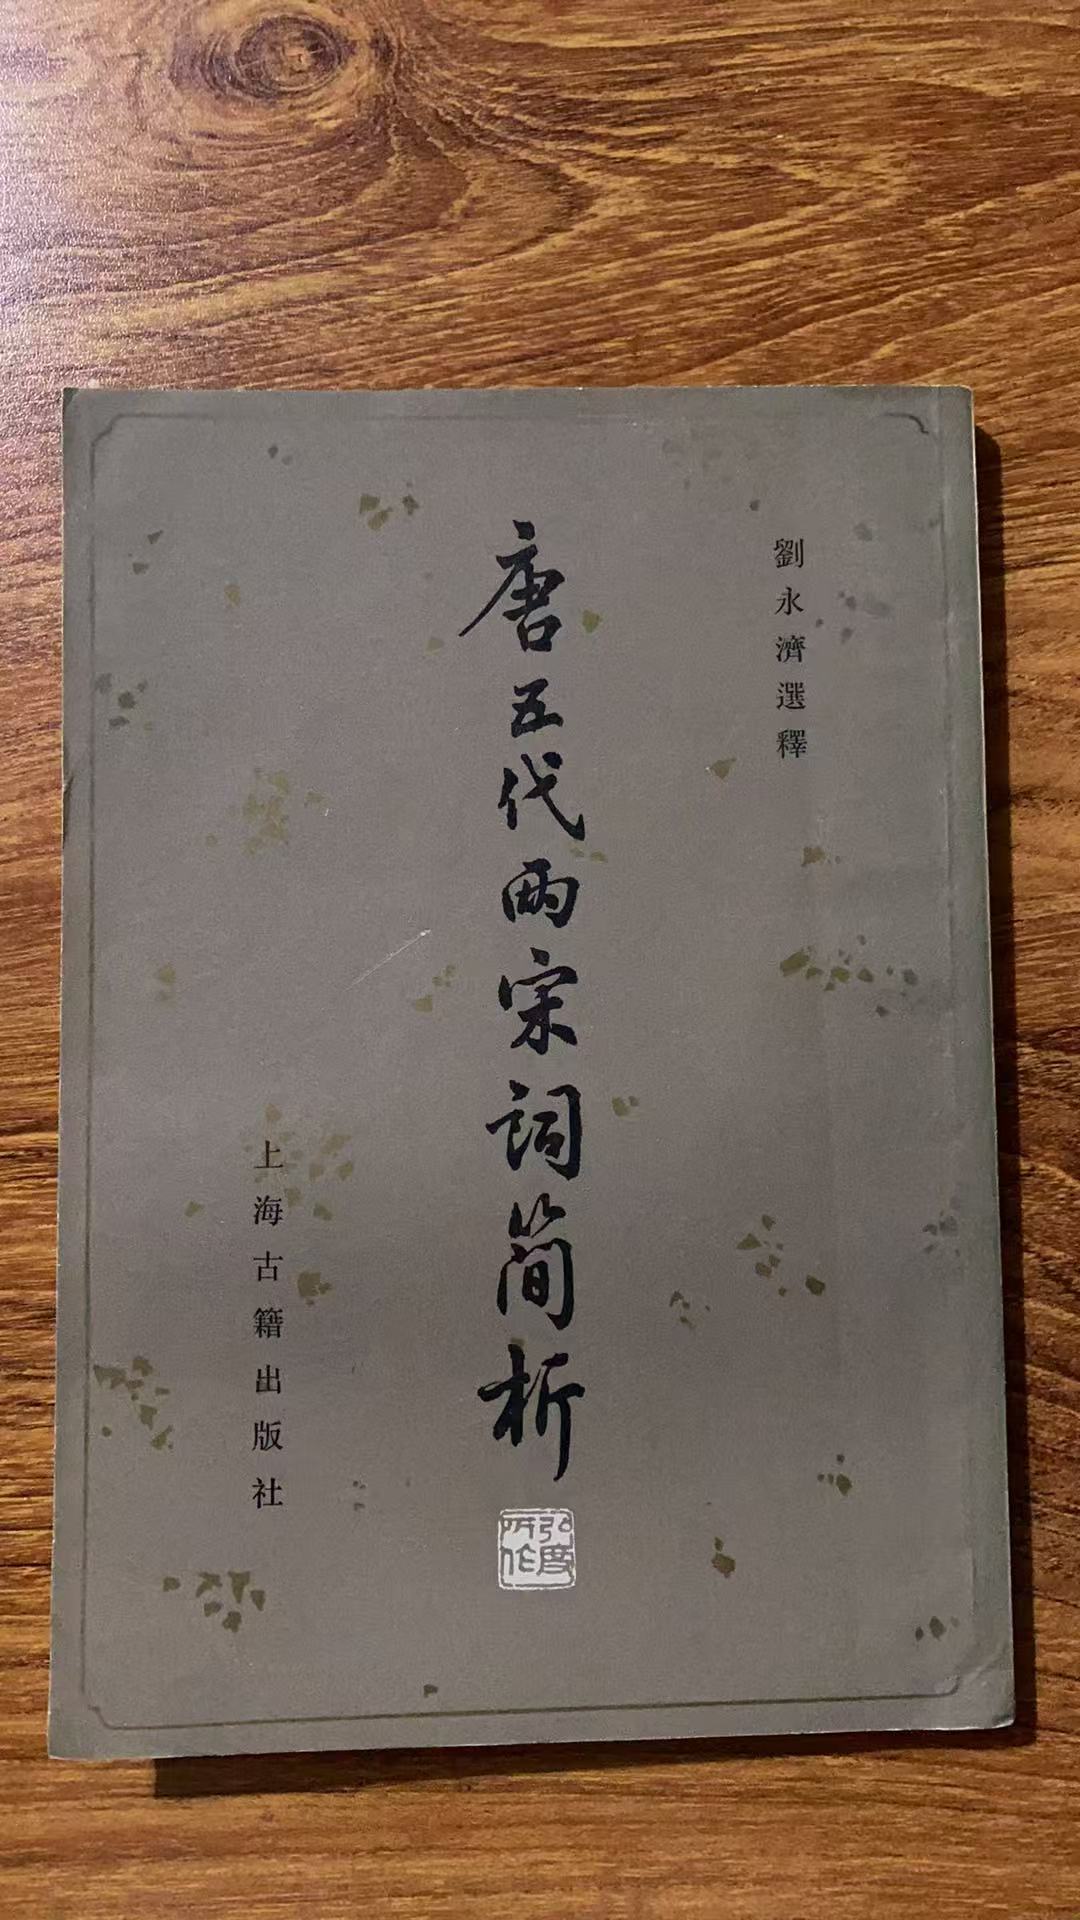 劉永濟選釋
唐五代两宋词简析
弘度
所作
上海古籍出版社